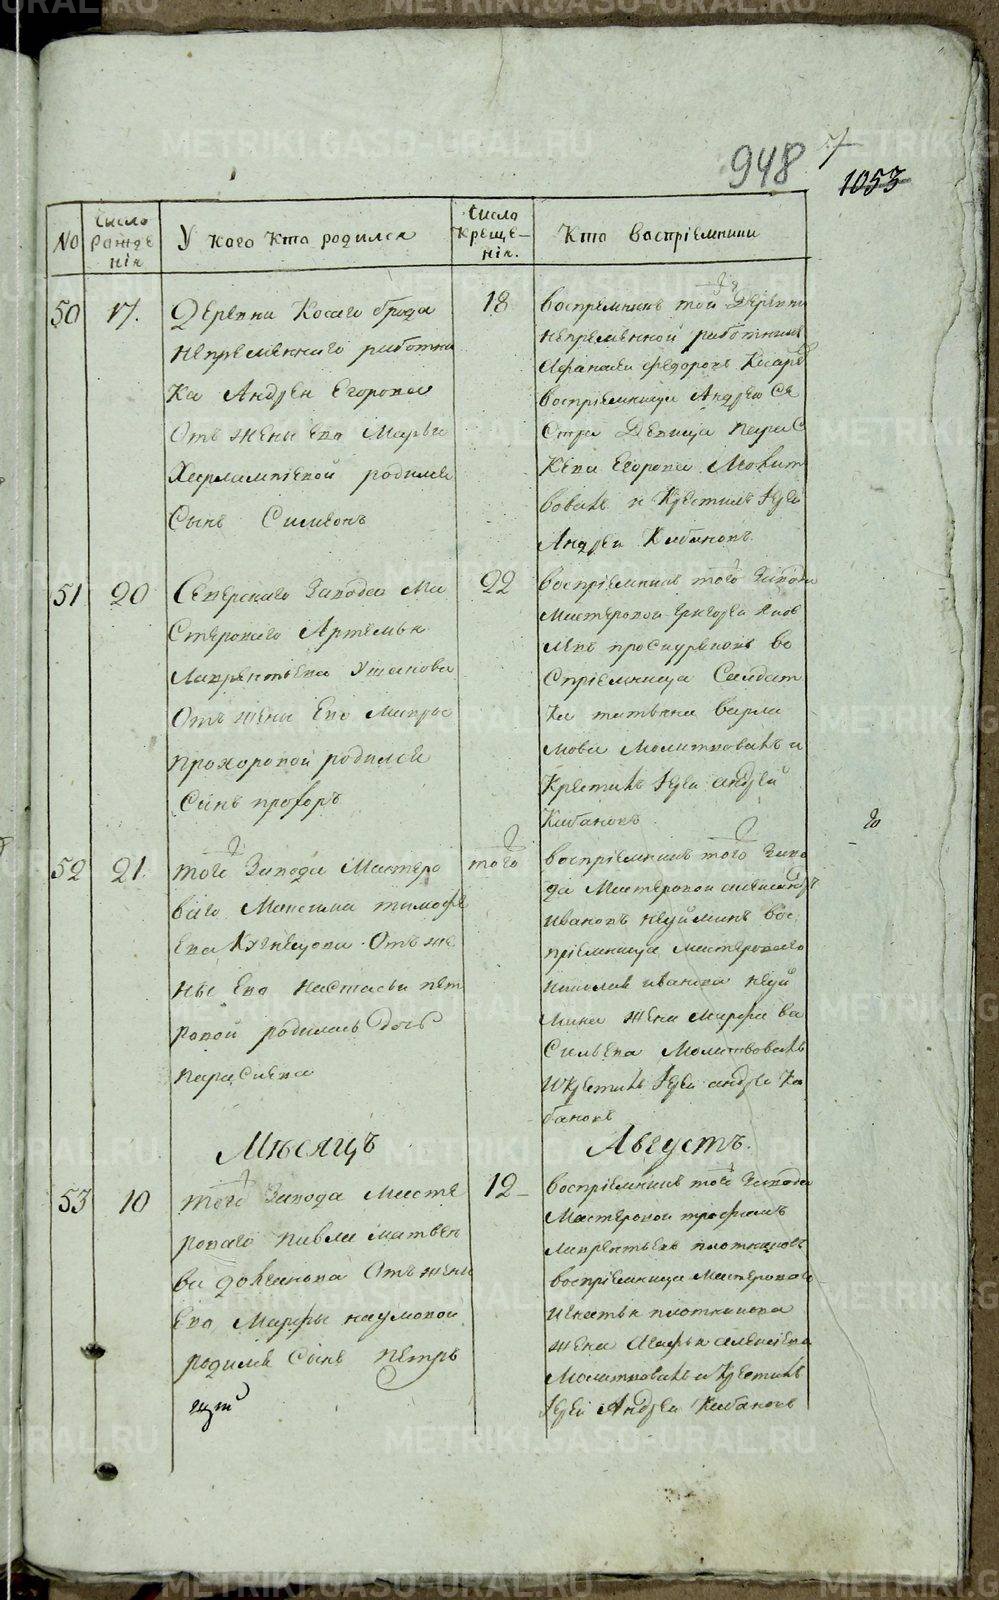 948
1053
No
Число Рожде нія
У кого кто родился
Число Креще- нія.
Кто воспріемники
50
17.
Деревни Косаго брода
непременнаго работни
ка Андрея Егорова
Отъ жены Его Марьи
Харлампіевой родился
Сынъ Симеонъ
18
воспремникъ той Деревни
непременной работникъ
Афанасей Федоровъ
воспріемница Андрею Се
стра Девица Парас
кева Егорова Молит
вовалъ и Крестилъ Іерей
Андрей Кабановъ
51
20
Северскаго Завода Ма
стероваго Артемья
Лаврентьева Ушакова
Отъ жены Его Мавры
Прохоровой родился
Сынъ
22
воспріемникъ того Завода
Мастеровой Григорей Яков
левъ во
спріемница Салдат
ка татьяна варла
мова Молитвовалъ и
Крестилъ Іерей андрей
Кабановъ
52
21.
того Завода Мастеро
ваго Максима тимофе
ева Кузнецова Отъ же
ны Его Настасьи пет
ровой родилась Дочь
параскева
того
воспріемникъ того Заво
да Мастеровой александръ
ивановъ неуйминъ вос
пріемница Мастероваго
николая иванова неуй
мина жена Марфа ва
сильева Молитвовалъ
и Крестилъ Іерей андрей Ка
бановъ
Мѣсяцъ
Августъ.
53
10
того Завода Масте
роваго павла матвее
ва Отъ жены
Его Марфы наумовой
родился Сынъ петръ
12
воспріемникъ того Завода
Мастеровой трофимъ
лаврентьевъ плотниковъ
воспріемница Мастероваго
игнатья плотникова
жена Агафья алексеева
Молитвовалъ и Крестилъ
Іерей Андрей Кабановъ
METRIKI.GASO-URAL.RU